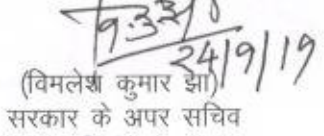 24/9/19
(विमलेश कुमार झा)
सरकार के अपर सचिव